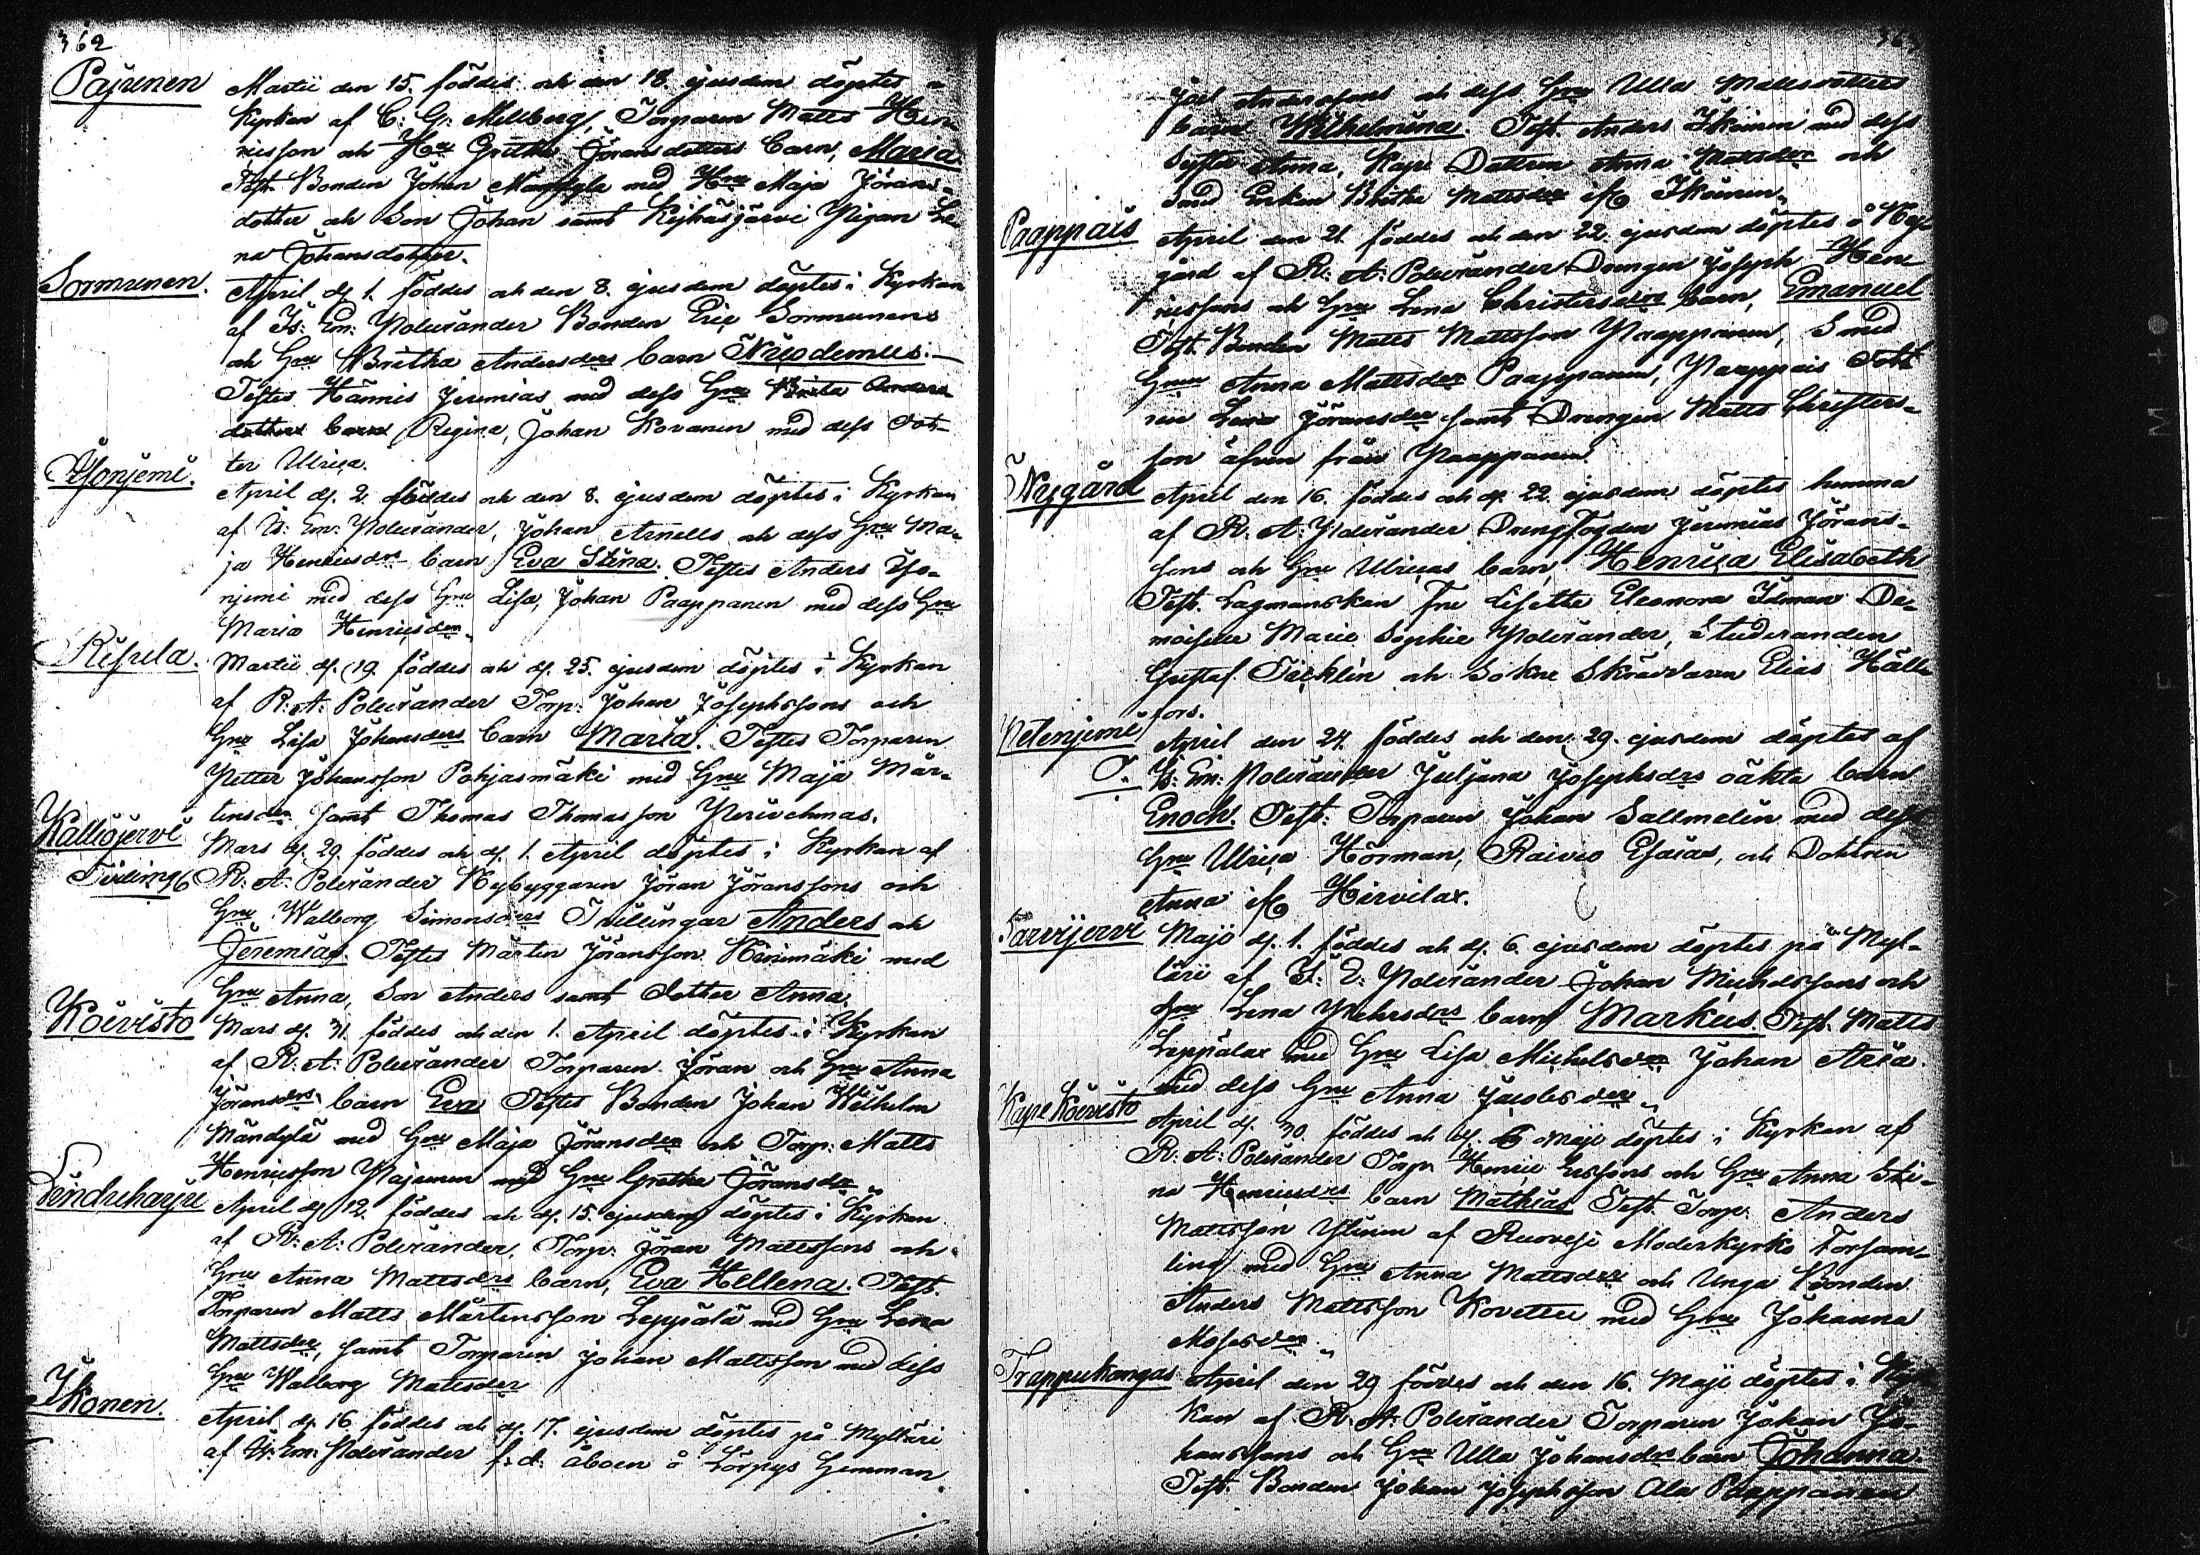 362
Pajunen Martii den 15. föddes och den 18. ejusdem döptes i
Kyrkan af C: G: Mellberg, Torparen Matts Hen-
ricsson och Hu Gretha Jöransdotters barn, Maria
Test. Bonden Johan Mandyla med Hu Maja Jörans-
dotter och Son Johan samt Pigan Le-
na Johansdotter.
Sormunen. April d. 1. föddes och den 8. ejusdem döptes i Kyrkan
af Is: Em: Poleränder Bonden Eric Sormunens
och Hu Britha Andersdrs barn Nicodemus.
Testes Hännis Jeremias med dess Hu Brita Anders
dotters barn Regina, Johan Kovanen med dess Dot-
ter Ulrica.
April d. 2. föddes och den 8. ejusdem döptes i Kyrkan
af Is: Em: Poleränder, Johan Arnells och dess Hu Ma-
ja Henricsdrs barn Eva Stina. Testes Anders
med dess Hu Lisa, Johan Paappanen med dess Hu
Maria Henricsder.
Martii d. 19. föddes och d. 25. ejusdem döptes i Kyrkan
af R: A: Poleränder Torp: Johan Josephssons och
Hu Lisa Johansdrs barn Maria. Testes Torparen
Petter Johansson Pohjasmäki med Hu Maja Mår-
tensder samt Thomas Thomasson
Kalliojervi Mars d. 29. föddes och d. 1. April döptes i Kyrkan af
R: A: Poleränder Nybyggaren Jöran Jöranssons och
Hu Walborg Simonsdrs Tvillingar Anders och
Jeremias. Testes Mårten Jöransson Niinimäki med
Hu Anna, Son Anders samt Dotter Anna.
Koivisto Mars d. 31. föddes och den 1. April döptes i Kyrkan
af R: A: Poleränder Torparen Jöran och Hu Anna
Jöransdrs barn Eva Testes Bonden Johan Wilhelm
Mändylä med Hu Maja Jöransder och Torp: Matts
Henricsson Pajunen med Hu Gretha Jöransdr
Lenduharju April d. 12. föddes och d. 15. ejusdem döptes i Kyrkan
af R: A: Poleränder, Torp: Jöran Mattssons och
Hu Anna Mattsdrs barn, Eva Hellena. Test.
Torparen Matts Mårtensson Leppälä med Hu Lena
Mattsder, samt Torparen Johan Mattsson med dess
Hu Walborg Mattsder
Ikonen. April d. 16 föddes och d. 17. ejusdem döptes på Myltäri
af Is: Em: Poleränder f. d. åboen å Hemman
363
Joel Anderssons och dess Hu Ulla Mattsdotters
barn Wilhelmina. Test. Anders Ikoinen med dess
Syster Anna, Dottren Anna Mattsder och
Britha Mattsder ifr. Ikoinen.
Paappais April den 21. föddes och den 22. ejusdem döptes å Ny-
gård af R: A: Poleränder Drengen Joseph Hen-
ricssons och Hu Lena Christersdrs barn, Emanuel
Test. Bonden Matts Mattsson Paappanen, Smed
Hu Anna Mattsder Paappanen, Paappais Dott
ren Lena Jöransder samt Drengen Matts Christers-
son äfven från Paappanen.
Nygård April den 16. föddes och d. 22. ejusdem döptes hemma
af R: A: Poleränder Drengfogden Jeremias Jörans-
sons och Hu Ulricas barn, Henrica Elisabeth
Test. Lagmanskan Fru Lisette Eleonora Idman De-
moiselle Marie Sophie Poleränder, Studeranden
Gustaf och Sokne Skräddaren Elias Hälle-
fors.
Petenjemi April den 24. föddes och den 29. ejusdem döptes af
O. Is: Em: Poleränder Juljana Josephsdrs oäkta barn
Enoch. Test: Torparen Johan Sallmelin med dess
Hu Ulrica Hörman, Raivio Esaias, och Dottren
Anna ifr. Hirvilax.
Tarvijervi Maji d. 1. föddes och d. 6. ejusdem döptes på Myl-
täri af Poleränder Johan Michelssons och
Hu Lena Pehrsdrs barn Markus. Test. Matts
Leppälax med Hu Lisa Michelsder Johan
med dess Hu Anna Jacobsder.
Kape Koivisto April d. 30. föddes och d. 6 Maji döptes i Kyrkan af
R: A: Poleränder Torp: Henric Ersons och Hu Anna Sti-
na Henricsdrs barn Mathias Test. Torp: Anders
Mattsson af Ruovesi Moderkyrko Försam-
ling med Hu Anna Mattsder och Unga Bonden
Anders Mattsson med Hu Johanna
Mosesder.
Trappukangas April den 29 föddes och den 16. Maji döptes i Kyr-
kan af R: A: Poleränder Torparen Johan Jo-
hanssons och Hu Ulla Johansdrs barn Johanna.
Test. Bonden Johan Josephsson Ala Paappanen